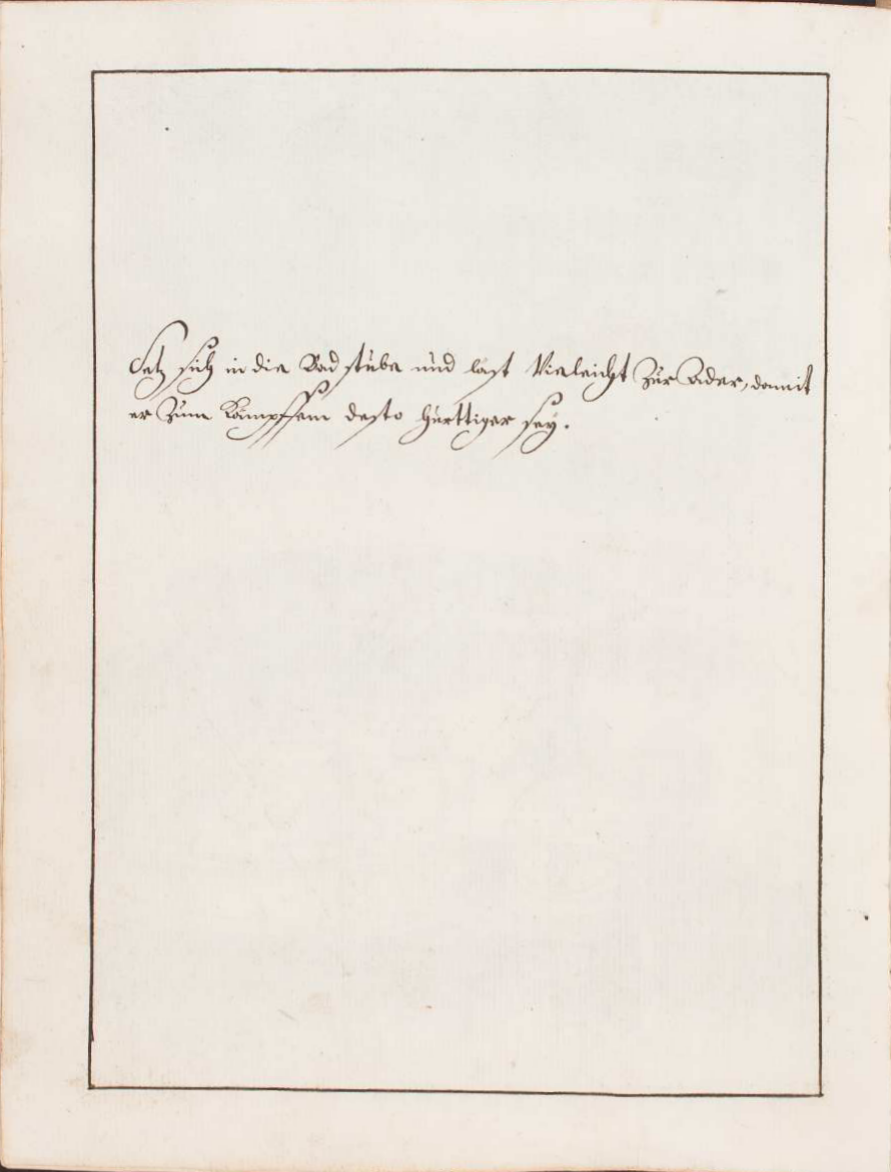 Setz sich in die Bad stube und läst Vieleicht Zur Ader, damit
er Zum Kämpffen desto hurttiger sey.